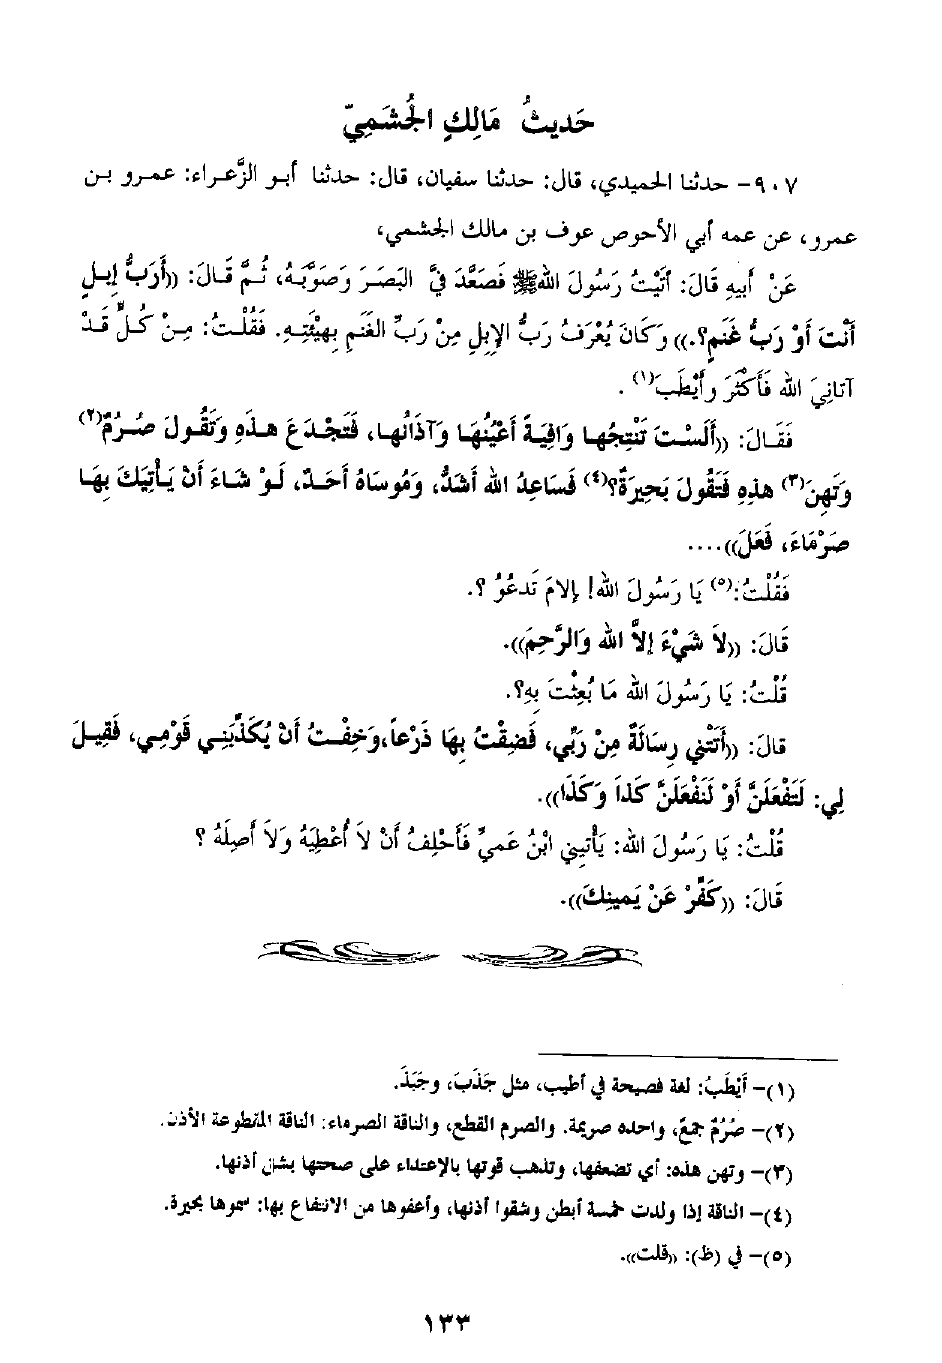 حَديثُ مَالِكٍ الجُشَمِيّ
٩٠٧- حدثنا الحميدي، قال: حدثنا سفيان، قال: حدثنا أبو الزَّعراء: عمرو بن
عمرو، عن عمه أبي الأحوص عوف بن مالك الجشمي،
عَنْ أبيهِ قَالَ: أتَيْتُ رَسُولَ اللهِ ﷺ فَصَعَّدَ فيَّ البَصَرَ وَصَوَّبَهُ، ثُمَّ قَالَ: ((أَرَبُّ إبِلٍ
أنْتَ أوْ رَبُّ غَنَمٍ؟.)) وَكَانَ يُعْرَفُ رَبُّ الإبِلِ مِنْ رَبِّ الغَنَمِ بِهَيْئَتِهِ. فَقُلْتُ: مِنْ كُلٍّ قَدْ
آتانِيَ الله فَأكْثَرَ وأيْطَبَ(١) .
فَقَالَ: ((أَلَسْتَ تَنْتِجُها وَافِيَةً أعْيُنُهَا وَآذَانُها، فَتَجْدَعَ هذَهِ وَتَقُولَ صُرُمٌ(٢)
وَتَهِنَ(٣) هذِهِ فَتَقُولَ بَحِيرَةٌ؟(٤) فَسَاعِدُ الله أشَدُّ، وَمُوسَاهُ أحَدُّ، لَوْ شَاءَ أنْ يَأتِيَكَ بِهَا
صَرْمَاءَ، فَعَلَ))....
فَقُلْتُ:(٥) يَا رَسُولَ الله! إلامَ تَدعُوُ ؟.
قَالَ: ((لاَ شَيْءَ إلاَّ الله وَالرَّحِمَ)).
قُلْتُ: يَا رَسُولَ الله مَا بُعِثْتَ بِهِ؟.
قالَ: ((أَتَتْني رِسَالَةٌ مِنْ رَبِّي، فَضِقْتُ بِهَا ذَرْعاً،وَخِفْتُ أنْ يُكَذِّبَنِي قَوْمِي، فَقِيلَ
لِي: لَتَفْعَلَنَّ أوْ لَنَفْعَلَنَّ كَذَا وَكَذَا)).
قُلْتُ: يَا رَسُولَ الله: يَأْتِيني ابْنُ عَمِيِّ فَأحْلِفُ أنْ لاَ أُعْطِيَهُ وَلاَ أصِلَهُ ؟
قَالَ: ((كَفِّرْ عَنْ يَمينِكَ)).
(١)- أيْطَبُ: لغة فصيحة في أطيب، مثل جَذَبَ، وجَبَذَ.
(٢)- صُرُمٌ جمعٌ، واحده صريمة. والصرم القطع، والناقة الصرماء: الناقة المقطوعة الأذن.
(٣)- وتهن هذه: أي تضعفها، وتذهب قوتها بالإعتداء على صحتها بشان أذنها.
(٤)- الناقة إذا ولدت خمسة أبطن وشقوا أذنها، وأعفوها من الانتفاع بها: سموها بحيرة.
(٥)- في (ظ): ((قلت)).
١٣٣